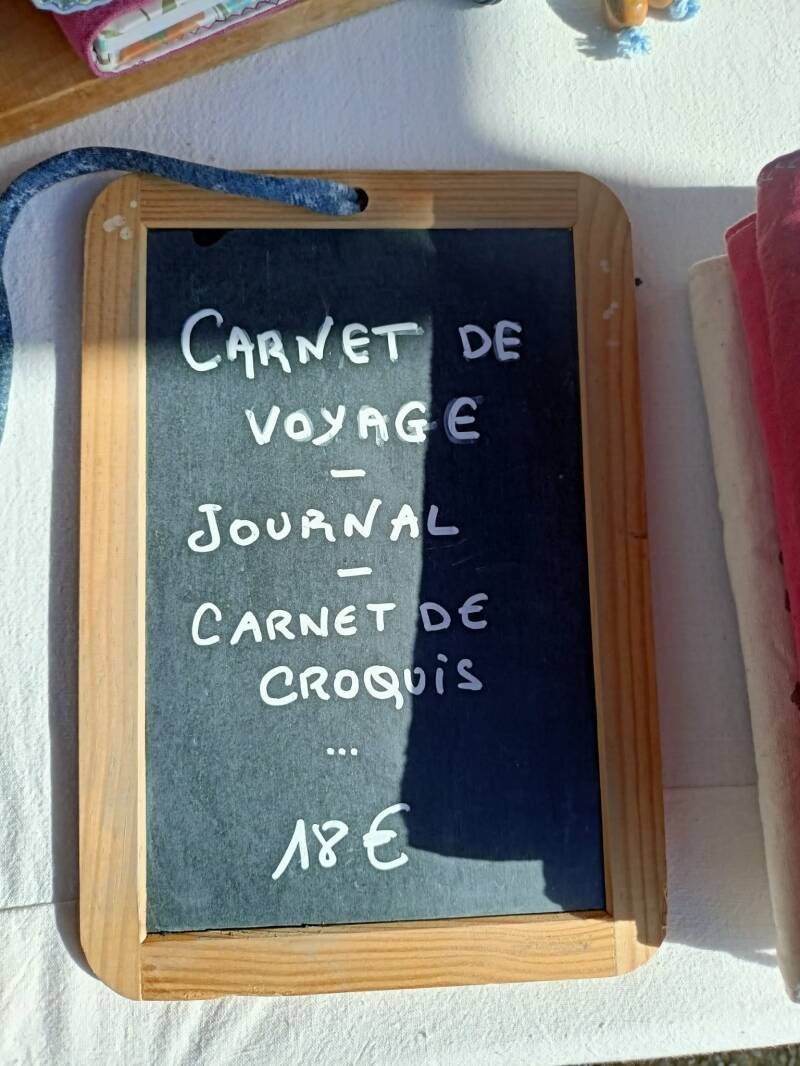 CARNET DE
VOYAGE
–
JOURNAL
–
CARNET DE
CROQUiS
...
18€